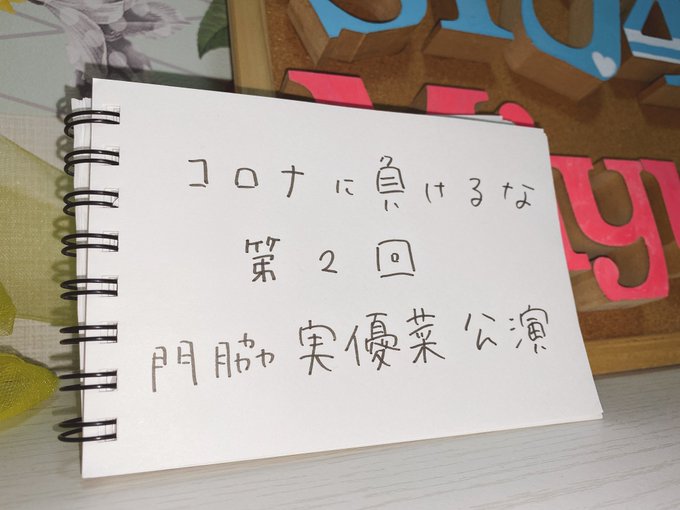 コロナに負けるな
第2回
門脇実優菜公演